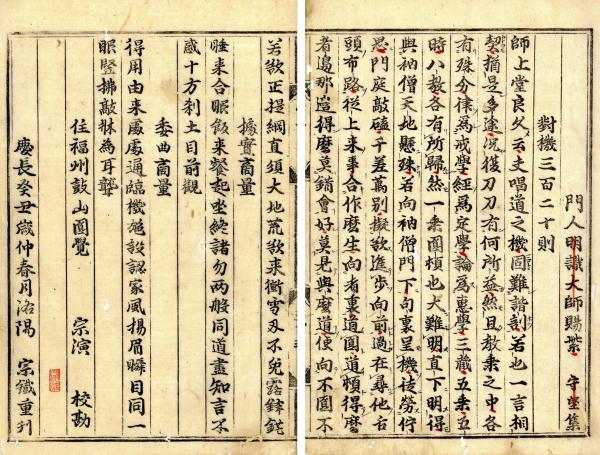 門人明識大師賜紫 守堅集
對機三百二十則
師上堂良久云夫唱道之機固難諧剖若也一言相
契猶是多途況復刀刀有何所益然且教乘之中各
有殊分律為戒學經為定學論為惠學三藏五乘五
時八教各有所歸然一乘圓頓也大難明直下明得
與衲僧天地懸殊若向衲僧門下句裏呈機徒勞佇
思門庭敲磕千差萬別擬欲進步向前過在尋他舌
頭布路從上來事合作麼生向者裏道圓道頓得麼
者邊那邊得麼莫錯會好莫見與麼道便向不圓不
若欲正提綱直須大地荒欲來衝雪刃不免露鋒鋩
據實商量
睡來合眼飯來餐起坐終諸勿兩般同道盡知言不
惑十方剎土目前觀
委曲商量
得用由來處處通臨機施設認家風揚眉瞬目同一
眼豎拂敲牀為耳聾
住福州鼓山圓覺 宗演 校勘
慶長癸丑歲仲春月洛陽 宗鐵重刊